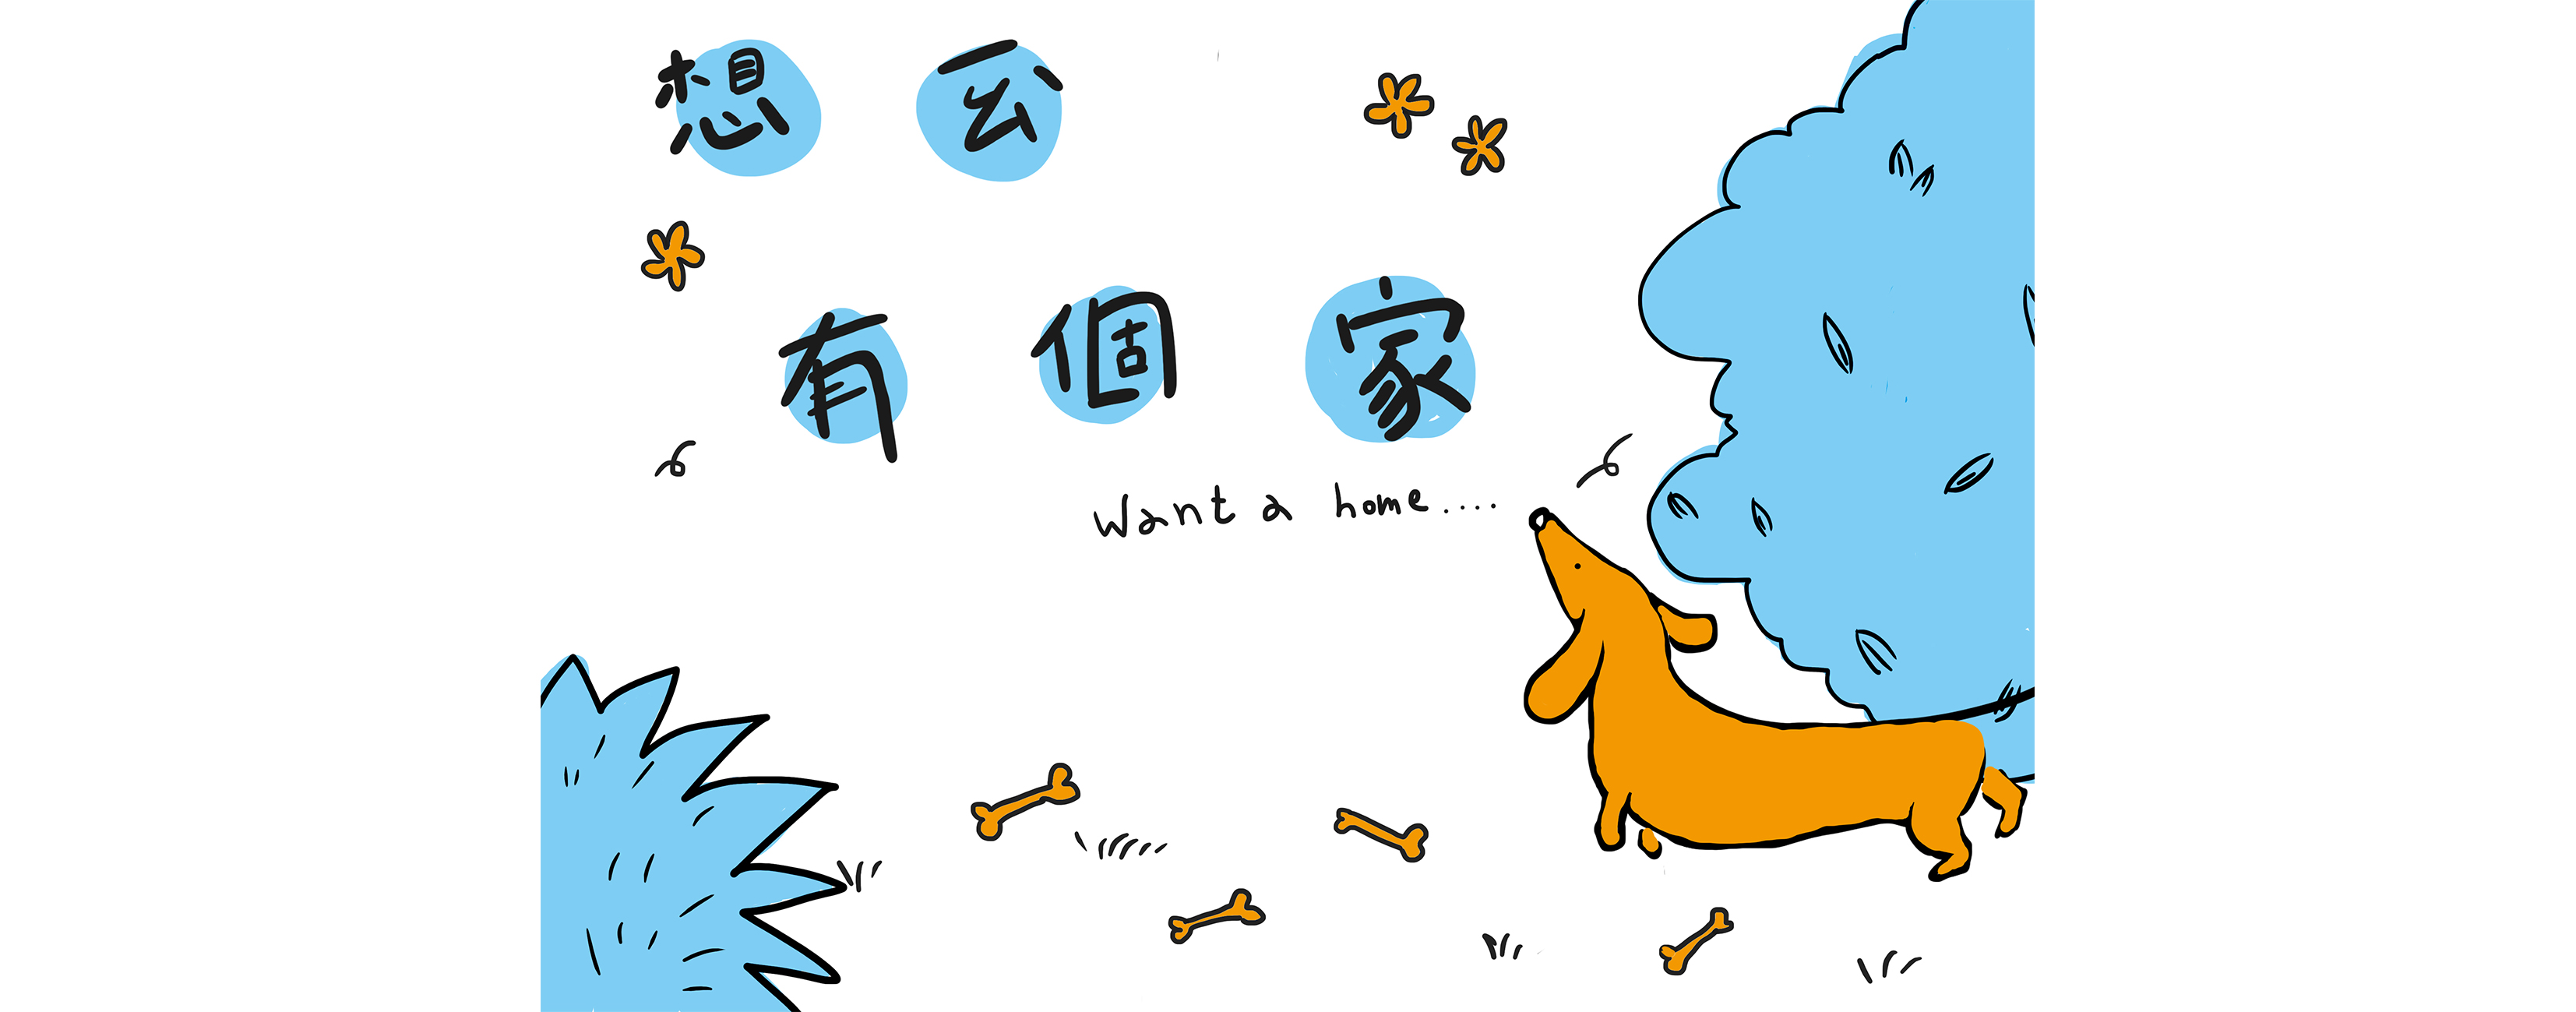 想ㄧㄠˋ
有個家
Want a home....